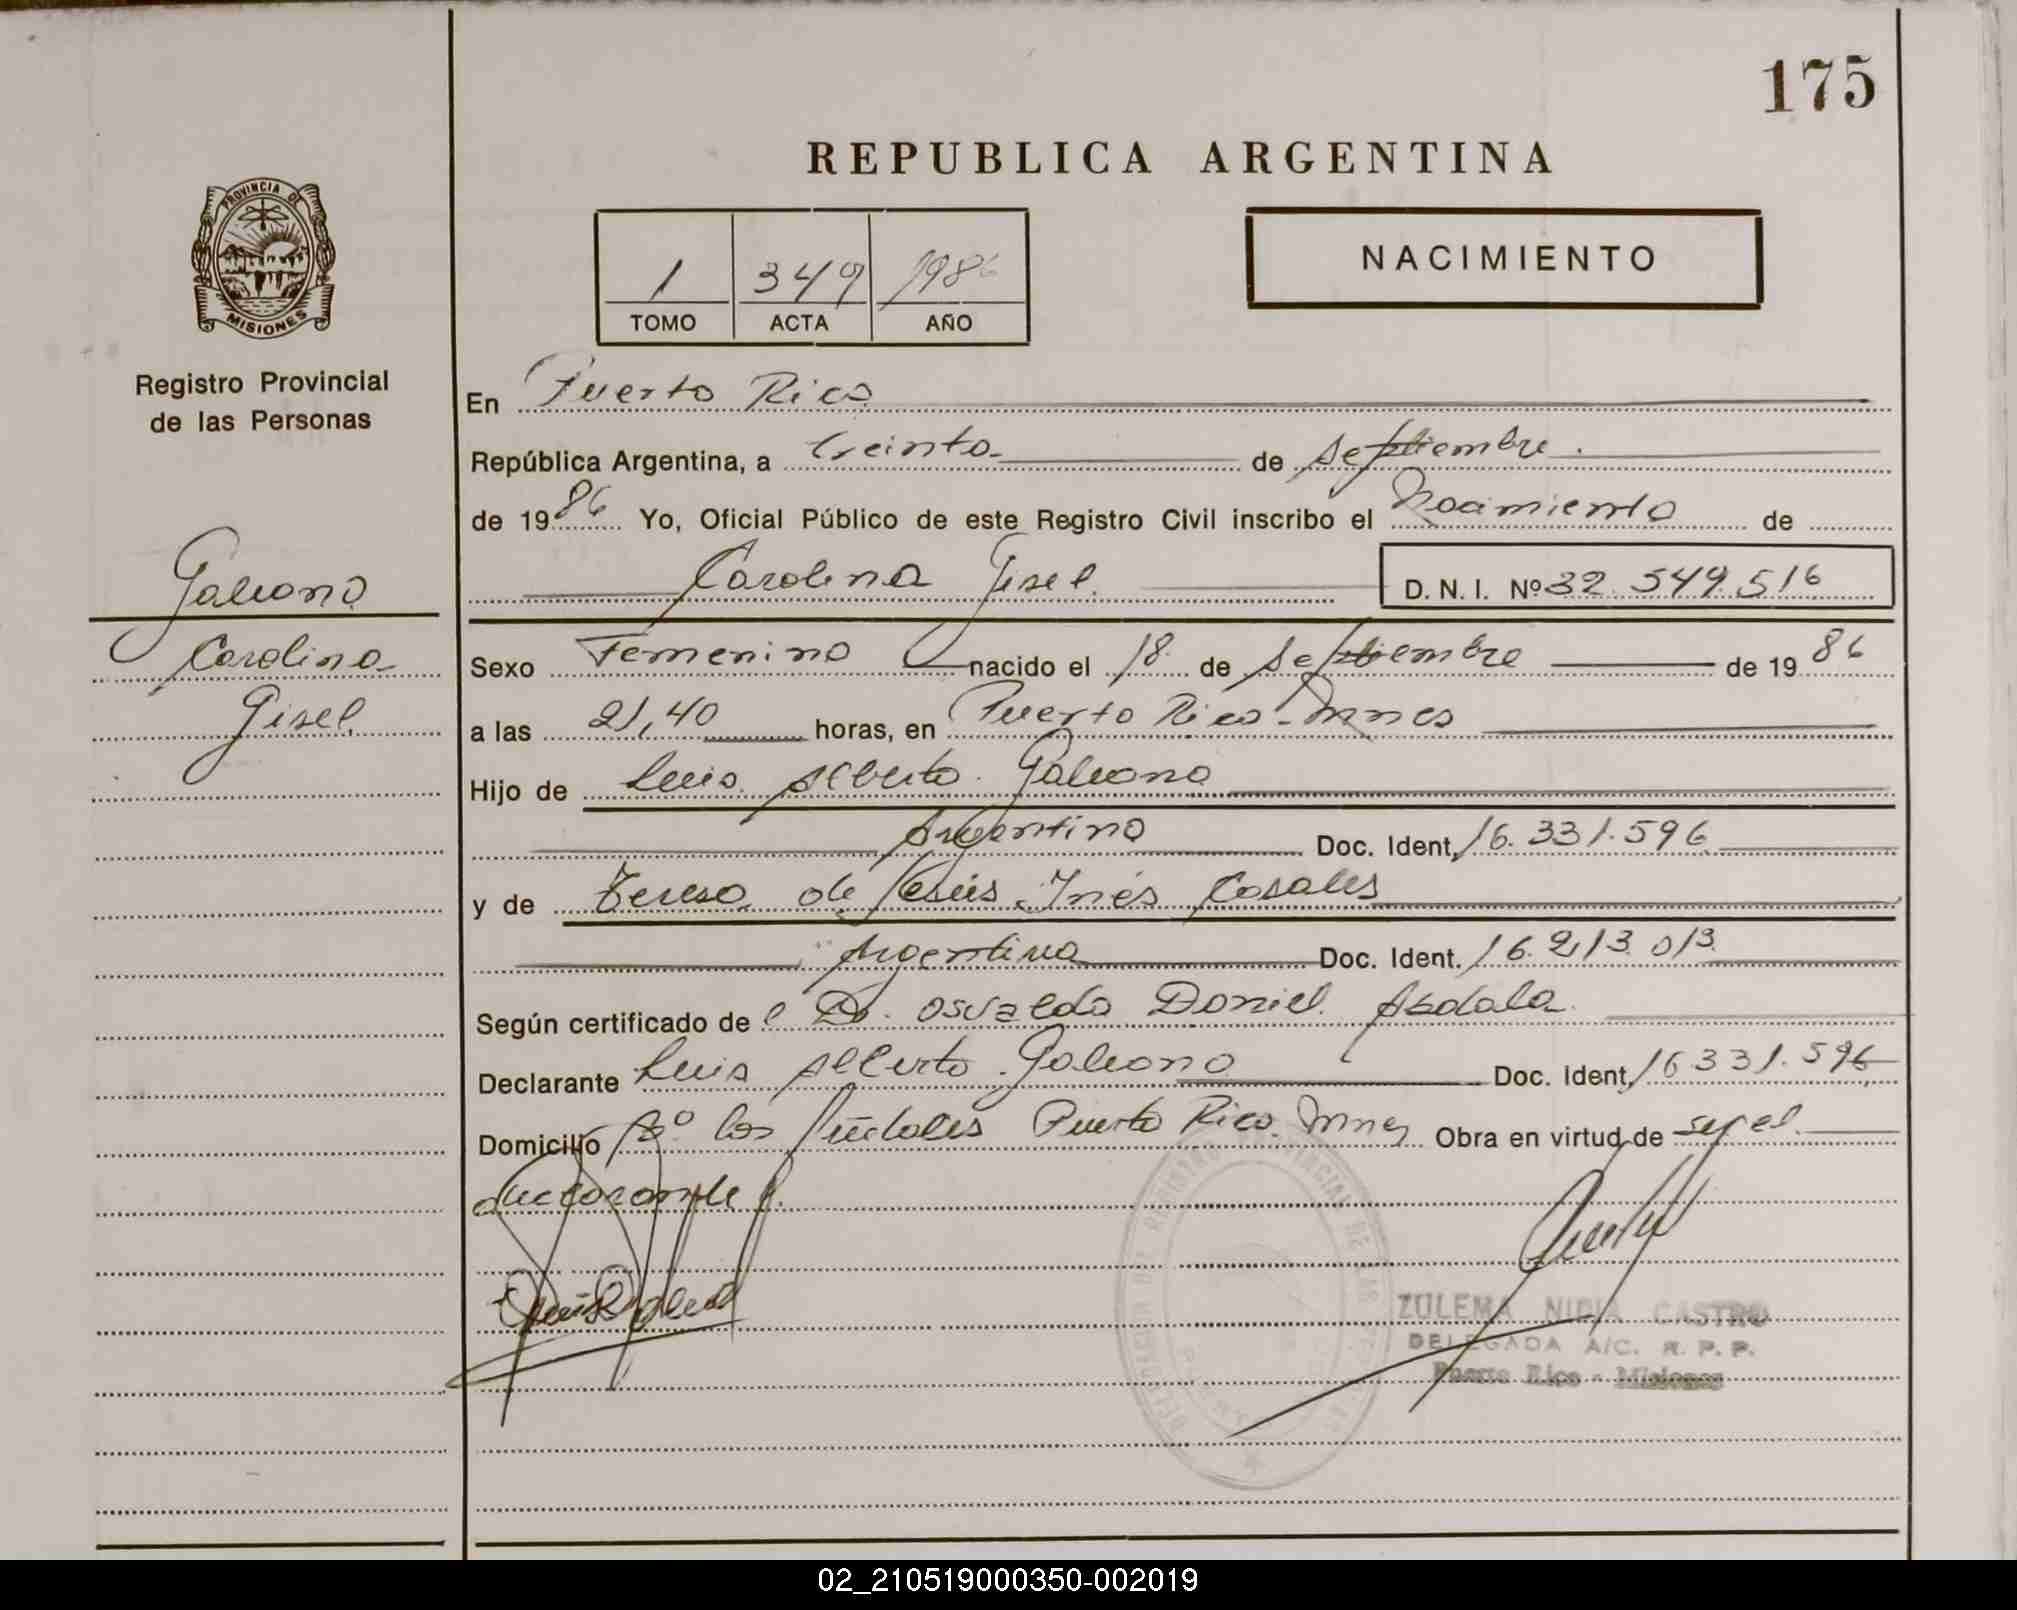 175
REPUBLICA ARGENTINA
PROVINCIA DE
MISIONES
Registro Provincial
de las Personas
1 349 1986
TOMO ACTA AÑO
NACIMIENTO
En Puerto Rico
República Argentina, a treinta de septiembre.
de 1986 Yo, Oficial Público de este Registro Civil inscribo el Nacimiento de
Carolina Gisel. D. N. I. Nº 32.549.516
Galeano
Carolina
Gisel
Sexo Femenino nacido el 18 de septiembre de 1986
a las 21,40 horas, en Puerto Rico - Mnes
Hijo de Luis Alberto Galeano
Argentino Doc. Ident. 16.331.596
y de Teresa de Jesús Inés Casales
Argentina Doc. Ident. 16.213.013
Según certificado del Dr. Osvaldo Daniel Abdala
Declarante Luis Alberto Galeano Doc. Ident. 16331.596
Domicilio Bº los Puerto Rico Mnes Obra en virtud de ser el
declarante
ZULEMA NIDIA CASTRO
DELEGADA A/C. R. P. P.
Puerto Rico - Misiones
02_210519000350-002019